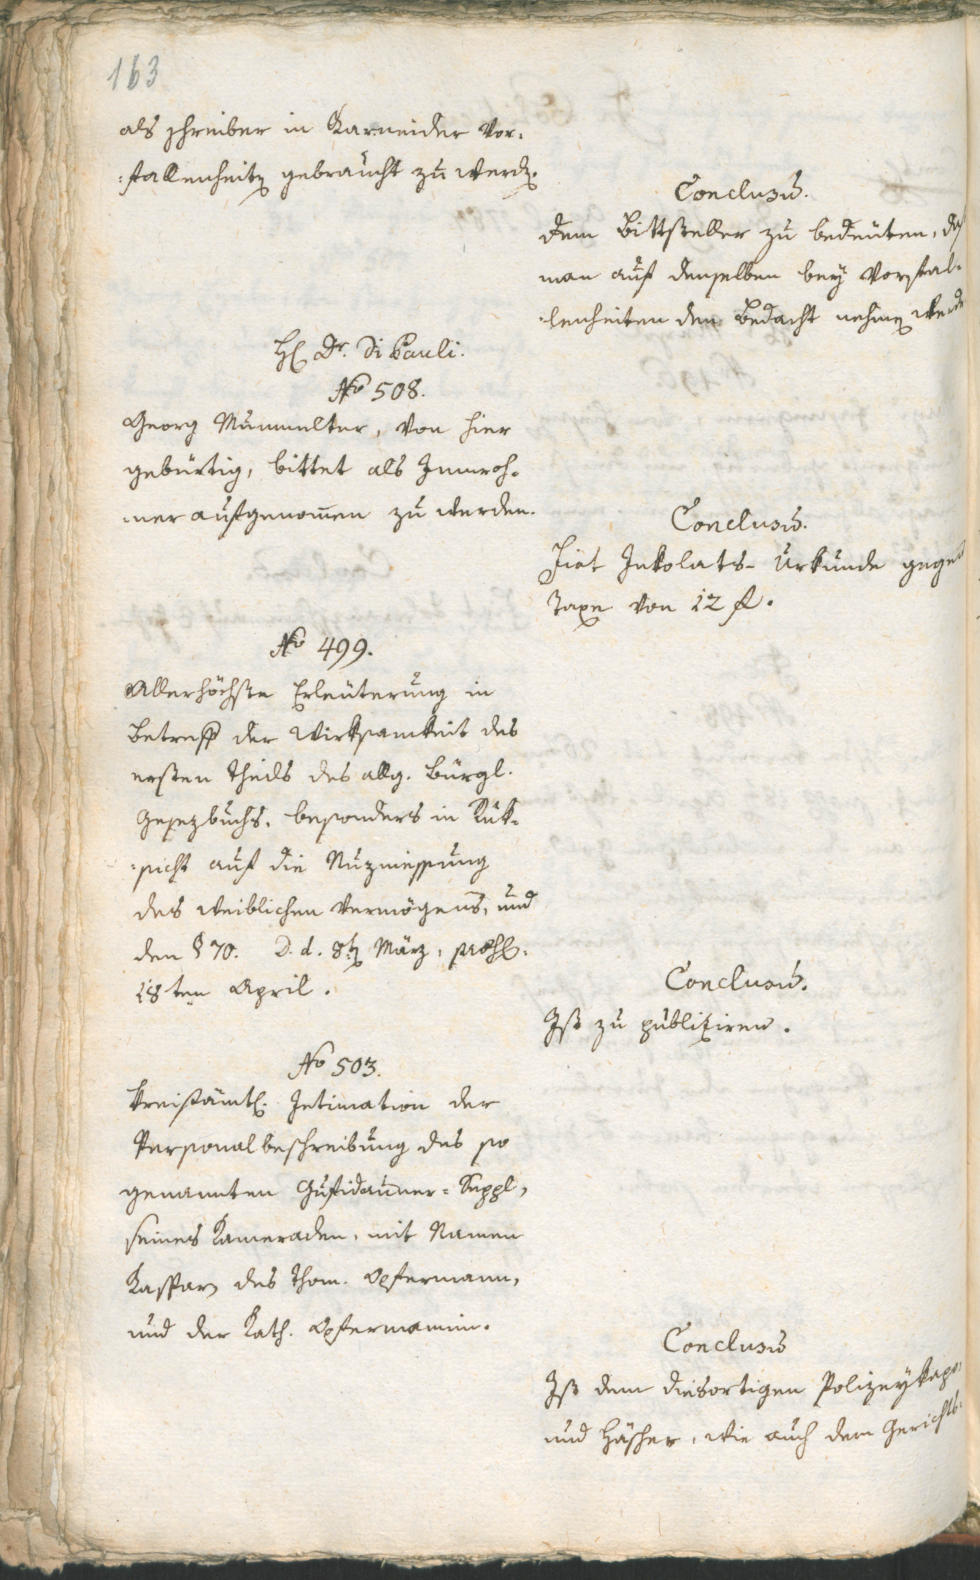 163
als schreiber in Karneider Vor-
:fallenheiten gebraucht zu werden.
Conclusum.
dem Bittsteller zu bedeuten, daß
man auf denselben bey Vorfal-
:lenheiten den Bedacht nehmen werde
H. Dr. Di Pauli.
No 508.
Georg Mumelter, von hier
gebürtig, bittet als Innwoh-
ner aufgenommen zu werden.
Conclusum.
Fiat Inkolats-Urkunde gegen
Taxe von 12 f.
No 499.
Allerhöchste Erleuterung in
Betreff der Wirksamkeit des
ersten Theils des allg. Bürgl.
Gesezbuchs, besonders in Rük-
:sicht auf die Nuzniessung
des weiblichen Vermögens, und
den § 70. D. d. 8ten März,
18ten April.
Conclusum.
Ist zu publiziren.
No 503.
Kreißämtl. Intimation der
Personalbeschreibung des so
genannten Gufidauner-Seppl,
seines Kameraden, mit Namen
Kaspar, des Thom. Opfermann,
und der Kath. Opfermanin.
Conclusum
Ist dem diesortigen Polizeykapo
und Häscher, wie auch dem Gerichts-